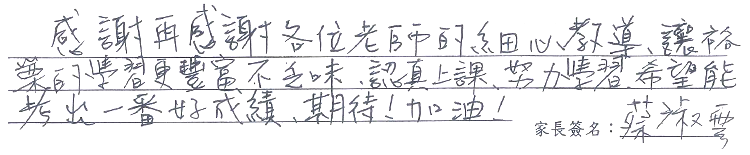 感謝再感謝各位老師的細心教導、讓裕
棠的學習更豐富不乏味、認真上課、努力學習、希望能
考出一番好成績、期待！加油！
家長簽名：蔡淑雲